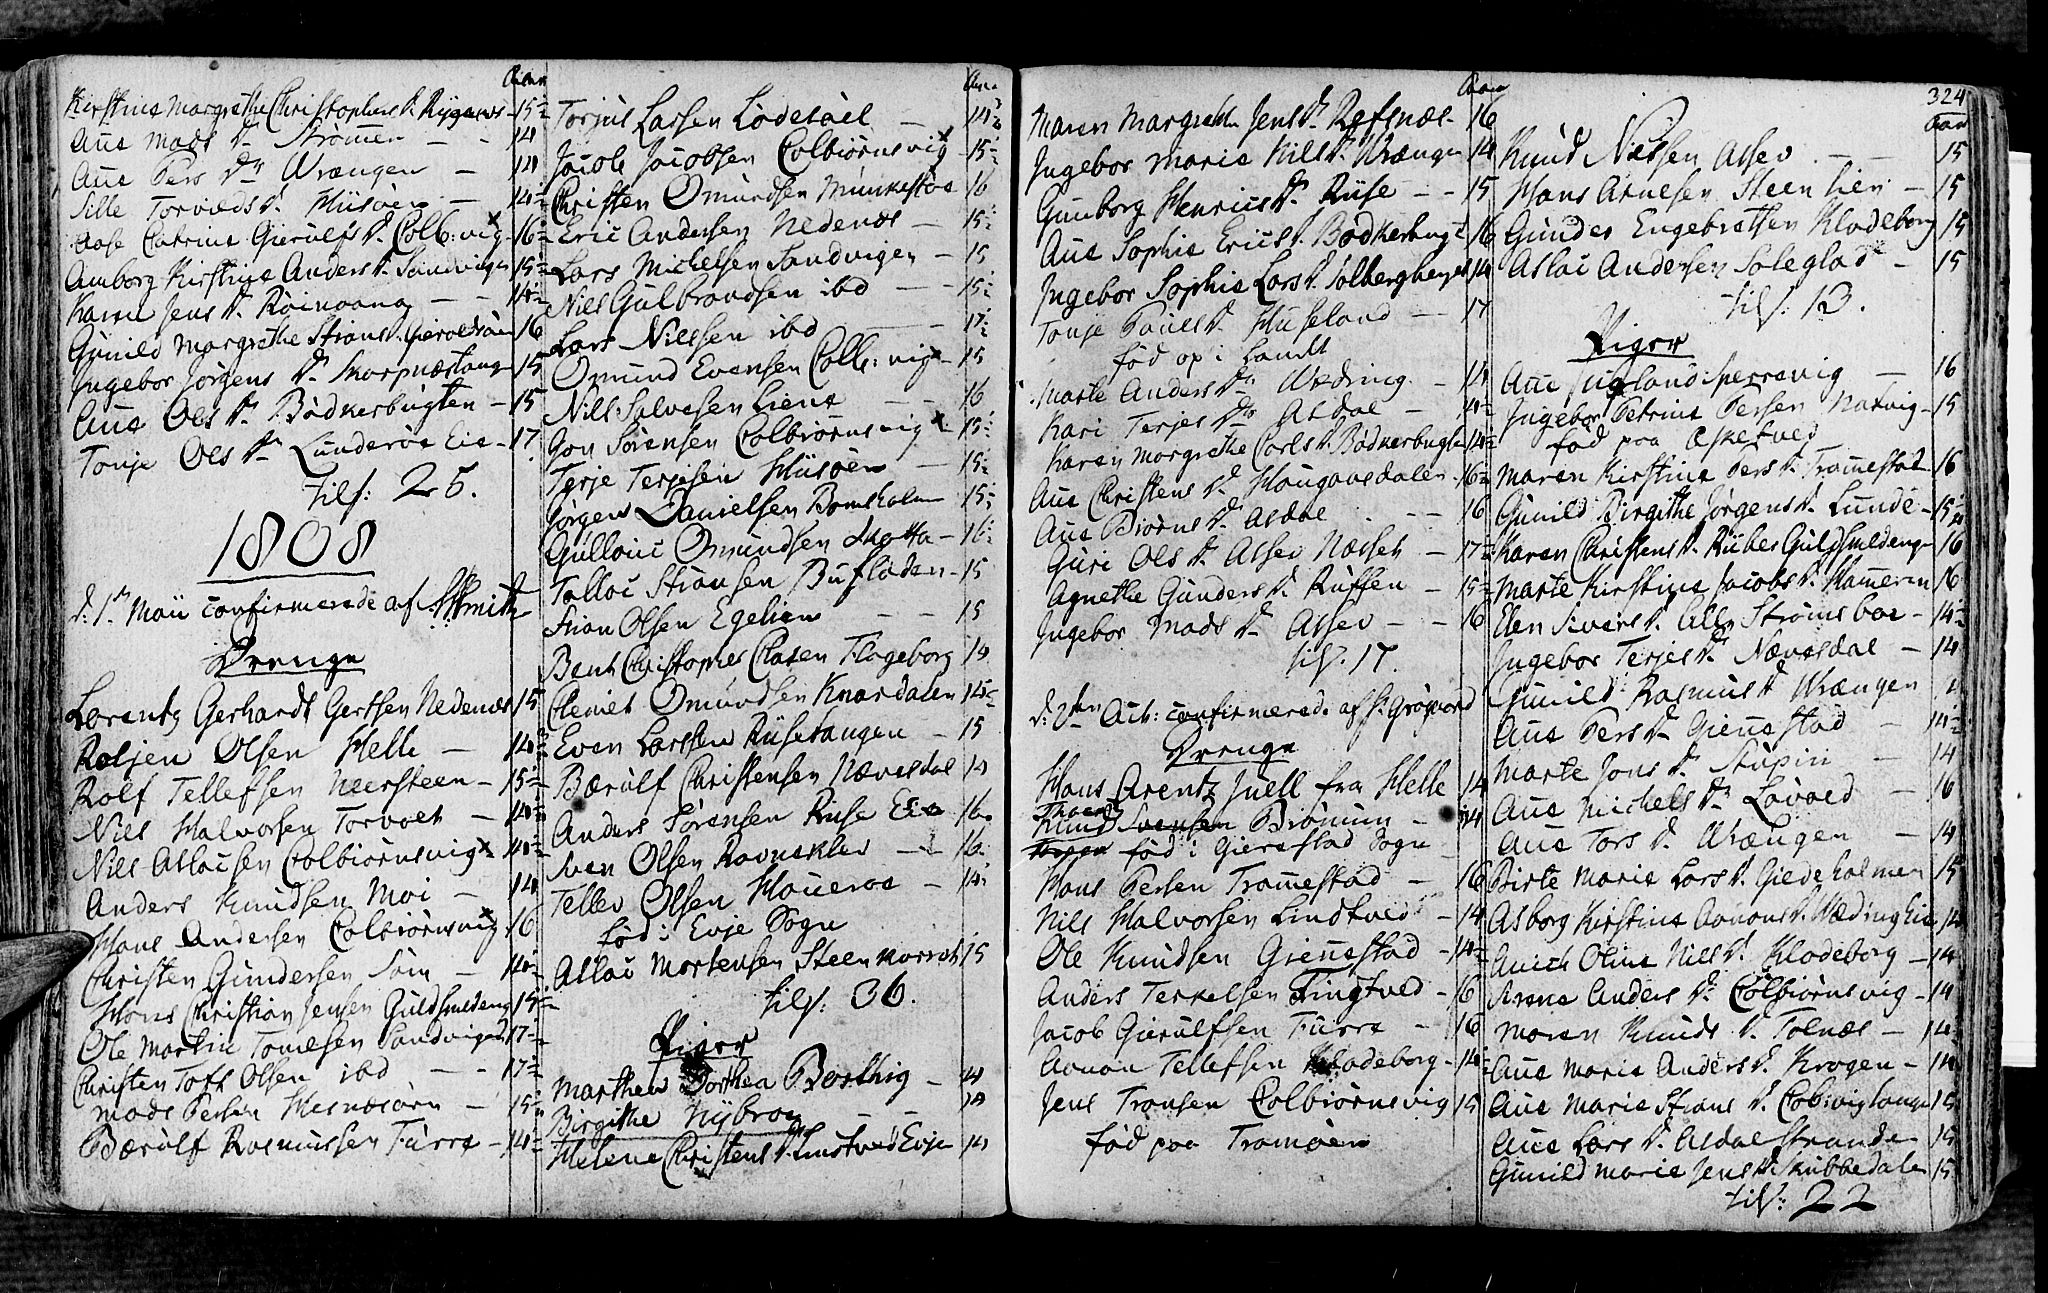 Aar
Kirstine Margrethe Christophers D. Rygenes 15½
Ane Mads D. Strømen - - 14
Ane Pers Dr Wrængen - 14
Sille Torvieds D. Hisøen - 14½
Aase Catrine Gierulfs D. Colb: vig 16½
Amborg Kirstine Anders D. Sandvigen 15½
Karen Jens D. - - 14½
Gunild Margrethe Strans D. 16
Ingebor Jørgens D. Skarpnæstange 15
Ane Ols D. Bødkerbugten - 15
Tonje Ols D. Lunderøe Eie - 17
tils: 25.
1808
d. 1. Maii confirmerede af S Smith
Drenge
Lorentz Gerhardt Gertsen Nedenæs 15
Reljer Olsen Helle - 14½
Rolf Tellefsen Neersteen - 15½
Niels Halvorsen Torvolt - 14½
Niels Aslacsen Colbiørnsvig x 14½
Anders Knudsen Moi - 14
Hans Andersen Colbiørnsvig x 16
Christen Gundersen Søm - 14½
Hans Christian Jensen Guldsmeden 15
Ole Martin Tomesen Sandvigen 17½
Christen Toft Olsen ibd - - 17½
Mads Persen Hesnæsøen - 15½
Bærulf Rasmussen Furre - 14½
Aar
Torjus Larsen Lødesøel - 14½
Jacob Jacobsen Colbiørnsvig x 15½
Christen Omundsen Munkestøe 16
Eric Andersen Nedenæs - 15½
Lars Michelsen Sandvigen - 15
Niels Gulbrandsen ibd - - 15½
Lars Nielsen ibd - - 17½
Omund Evensen Colb: vig x - 15
Niels Salvesen Liene - - 16
Jon Sørensen Colbiørnsvig x 15½
Terje Terjesen Hisøen - 15½
Jørgen Danielsen Bomsholm 15½
Gullouv Omundsen Skotta - 16½
Talloc Stiansen Bufladen - 15
Stian Olsen Egelien - - 15
Bent Christopher Clasen Flageborg 14
Omundsen Knardalen 14½
Even Larsen Risetangen - 15
Bærulf Christensen Nævesdal 14
Anders Sørensen Riise Eie 16
Sven Olsen Ravneklev - - 16
Tellev Olsen Houeroe - 14
fød i Evje Sogn
Aslac Mortensen Steen 15
tils: 36.
Piger
Marthea Dorthea Bertling - 14
Birgithe Nybroe - - 14
Helene Christens D. Lustved Evje 14
Aar
Maren Margrethe Jens D. Refsnæs 16
Ingebor Marie Niels D. Wrængen 14
Gunborg Henrics D. Riise - - 15
Ane Sophie Erics D. Bødkerbugt 16
Ingebor Sophie Lars D. Solbergherget 14
Tonje Povels D. Huseland - 17
fød op i Landt
Marte Anders Dr Wædring - 14
Kari Terjes Dr Asdal - 14½
Karen Margrethe Carls D. Bødkerbugten 14½
Ane Christens D. Hougansdalen 16½
Ane Biørns D. Asdal - - 16
Guri Ols D. Assev Næsset - 17½
Agnethe Gunders D. Ruften - 15½
Ingebor Mads D. Assev - - 16
tils. 17.
d: 2den Oct: confirmerede af Hr Grøgaard
Drenge
Hans Arentz Juell fra Helle 14
Knud Svensen Brømun - 14
fød i Gierestad Sogn
Hans Persen Tromestad - 16
Niels Halvorsen Lindtved - 14
Ole Knudsen Gienestad - 14½
Anders Terkelsen Tingtved - 16
Jacob Gierulfsen Furre - 16
Aanon Tellefsen Klodeborg - 14½
Jens Transen Colbiørnsvig 15
fød paa Tromøen
324
Aar
Knud Nielsen Assev - - 15
Hans Arnesen Steenlien - 15
Gunder Engebretsen Klodeborg 15
Aslac Andersen Soleglad - 15
tils. 13.
Piger
Ane Jugland Sperrevig - 16
Ingebor Petrine Persen Natvig - 15
fød paa Asketved
Maren Kirstine Pers D. Tromestad 16
Gunild Birgithe Jørgens D. Lunde - 15½
Karen Christens D. Rubes Guldsmedenge 16
Marte Kirstine Jacobs D. Hameren 16
Elen Sivers D. Strømsboe - 14½
Ingebor Terjes Dr Nævesdal - 14
Gunild Rasmus D. Wrængen 14
Ane Pers D. Gienestad - 14½
Marte Jons D. Stupin - 14
Ane Michels Dr Løvold - 16
Ane Tors D. Wrængen - 14
Birte Marie Lars D. Giedeholmen 15
Asborg Kirstine Aanons D. Wædring Eie 14
Anich Oline Niels D. Klodeborg - 14
Anne Anders D. Colbiørnsvig - 14
Maren Knuds D. Tolnæs - 14
Ane Marie Anders D. Krogen - 14
Ane Marie Stians D. Colb:vigtange 15
Ane Lars D. Asdal Strande 15
Gunild Marie Jens D. Skubbedalen 15
tils: 22